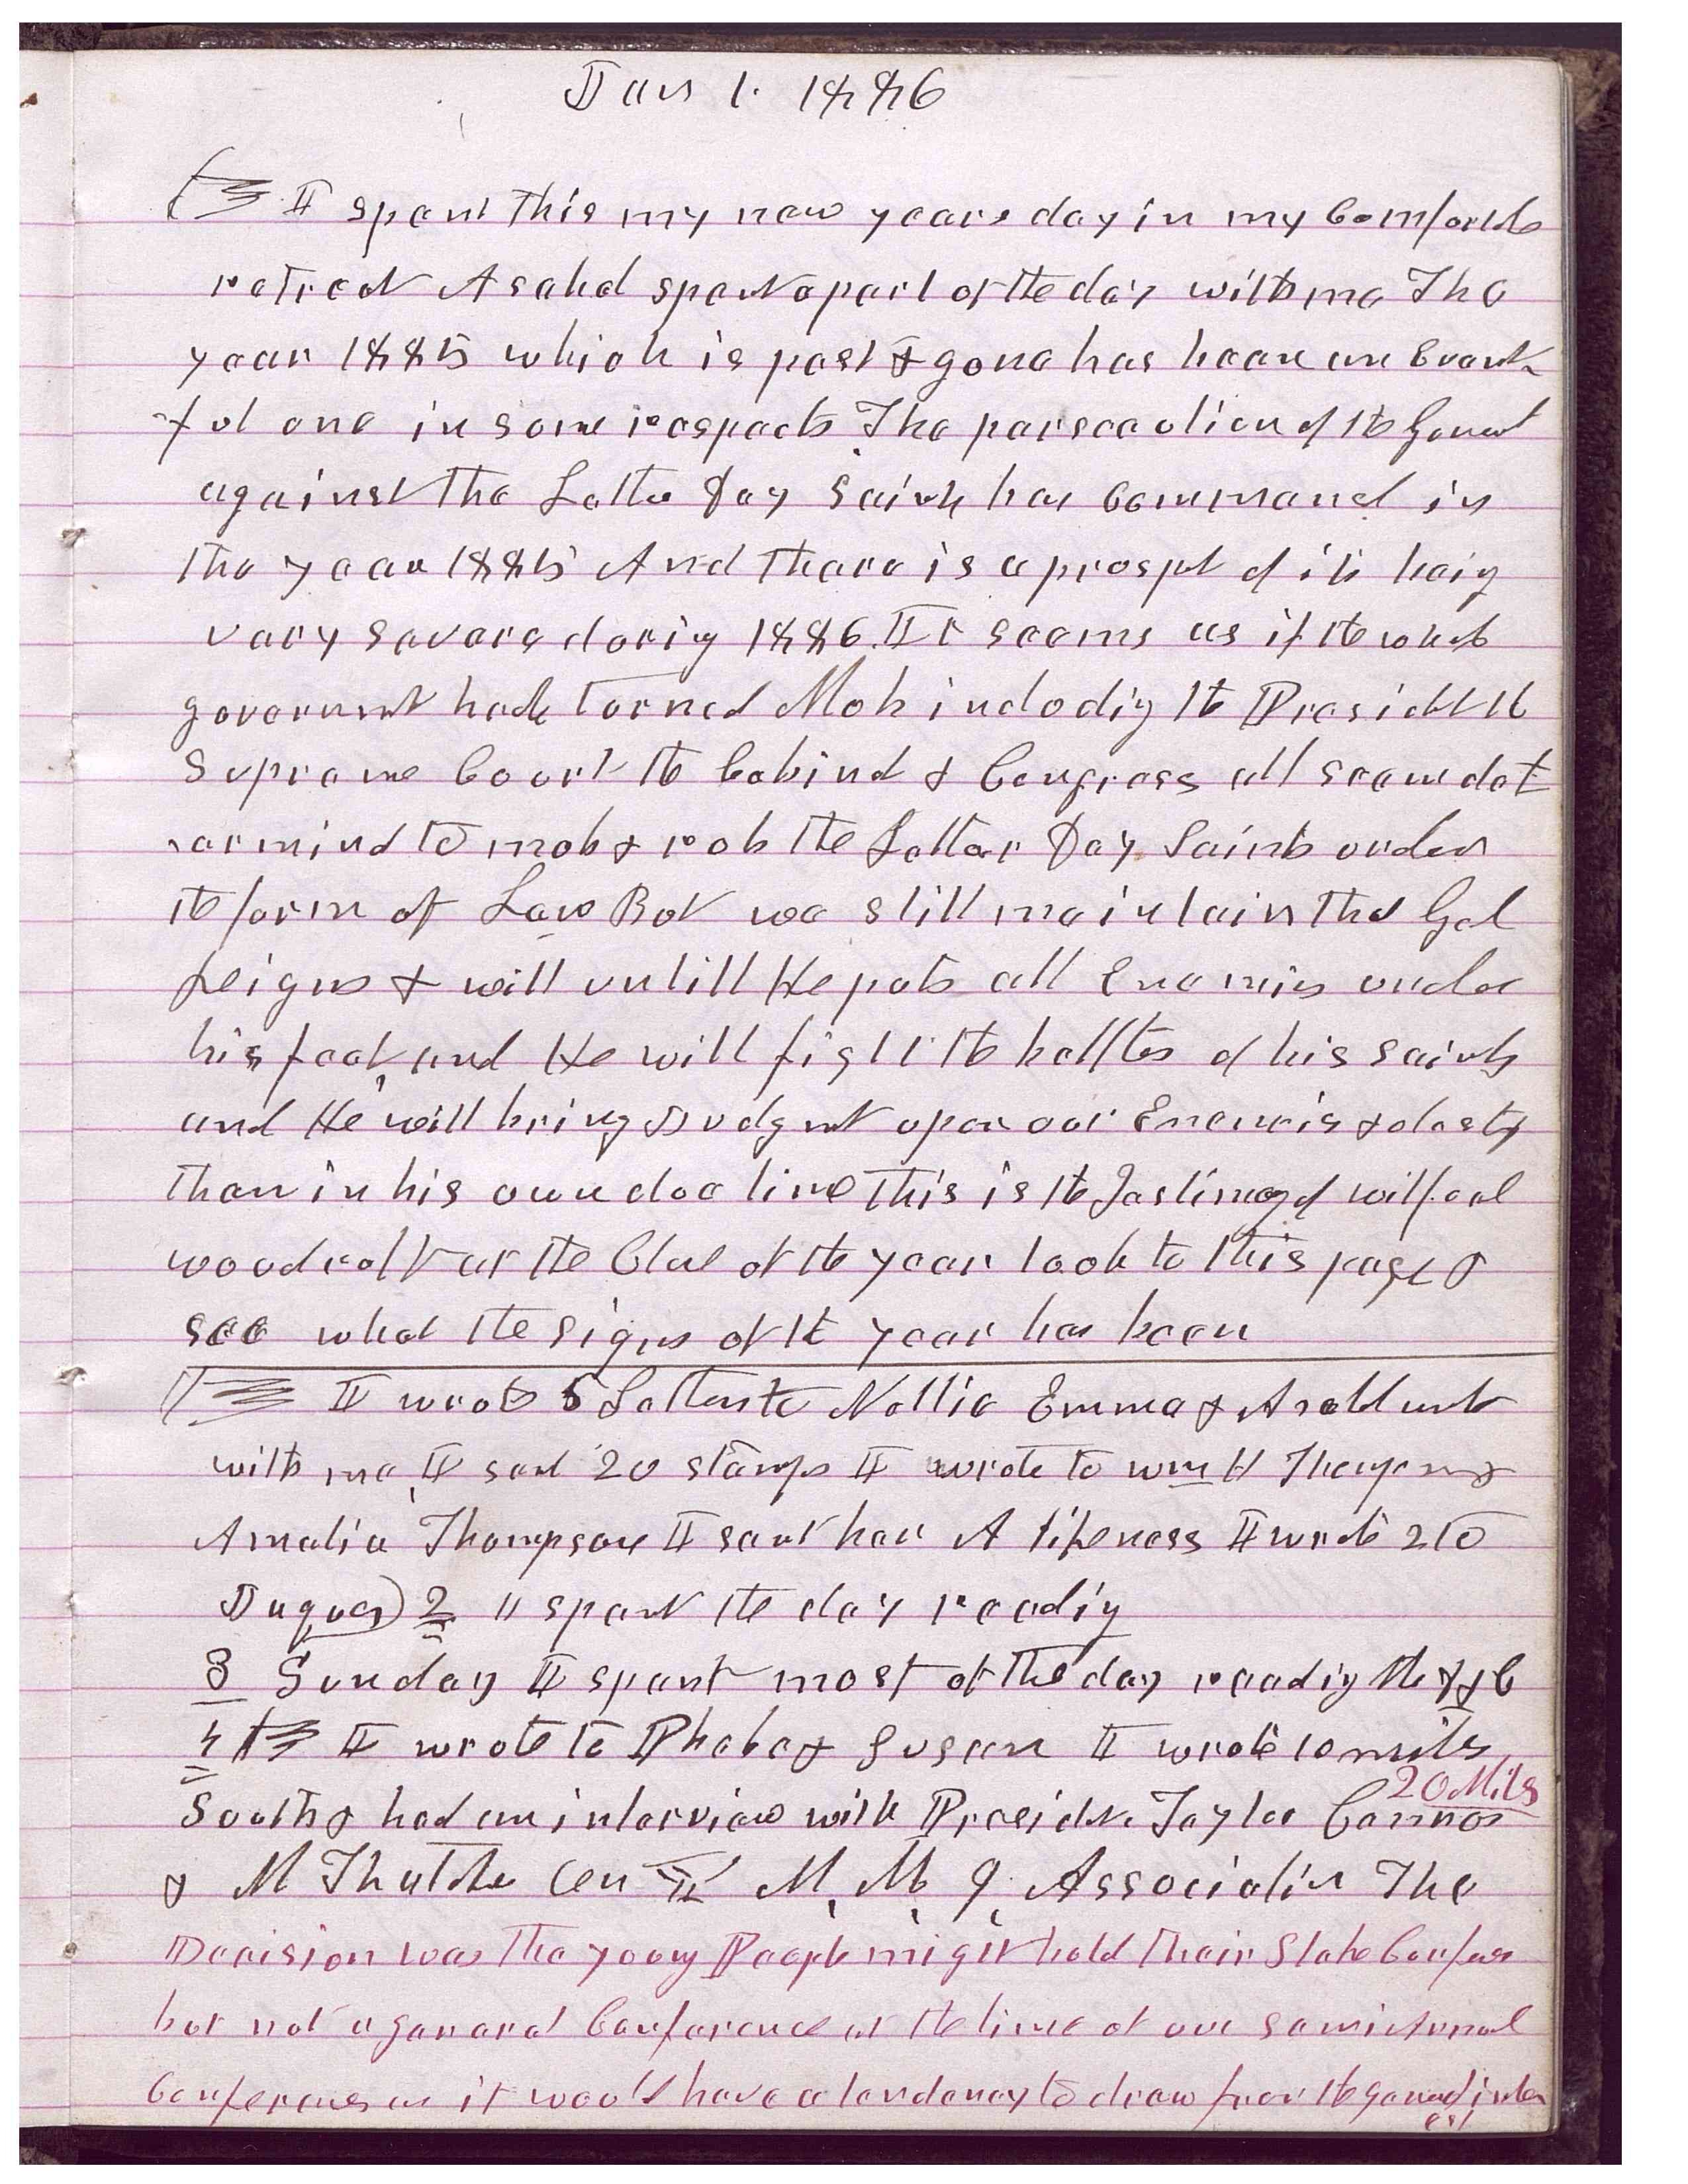 Jan 1. 1886
I spent this my new years day in my Comfortable
retreat Asahel spent a part of the day with me The
year 1885 which is past & gone has been an Event-
ful one in some respects. The persecution of the Govmt
against the Latter Day Saints has commenced in
the year 1885 And there is a prospt of its being
very severe during 1886. It seems as if the whole
government had turned Mob including the President the
Supreme Court the Cabind & Congress all seem det
ermind to mob & rob the Latter Day Saints under
the form of Law But we still maintain that God
Reigns & will untill He puts all Enemies under
his feet, and He will fight the battles of his saints
and He will bring Judgmt upon our Enemies & destry
them in his own due time This is the Testimony of Wilford
Woodruff at the Close of the year look to this page &
see what the signs of the year has been
I wrote 5 Letters to Nellie Emma & Asahel
with me, I sent 20 stamps I wrote to Wm H Thompson &
Amelia Thompson I sent her A likeness I wrote 2 to
Jaques) 2 II spent the day reading
3 Sunday I spent most of the day reading the D & C
4 I wrote to Phebe & Susan I rode 10 miles
20 Miles
South & had an interview with Presidet Taylor Cannon
& M Thatcher on M, M, I, Association The
Decision was the young People might hold their Stake Confere
but not a general Conference at the time of our semi Annual
Conferences as it would have a tendency to draw from the general inter
est